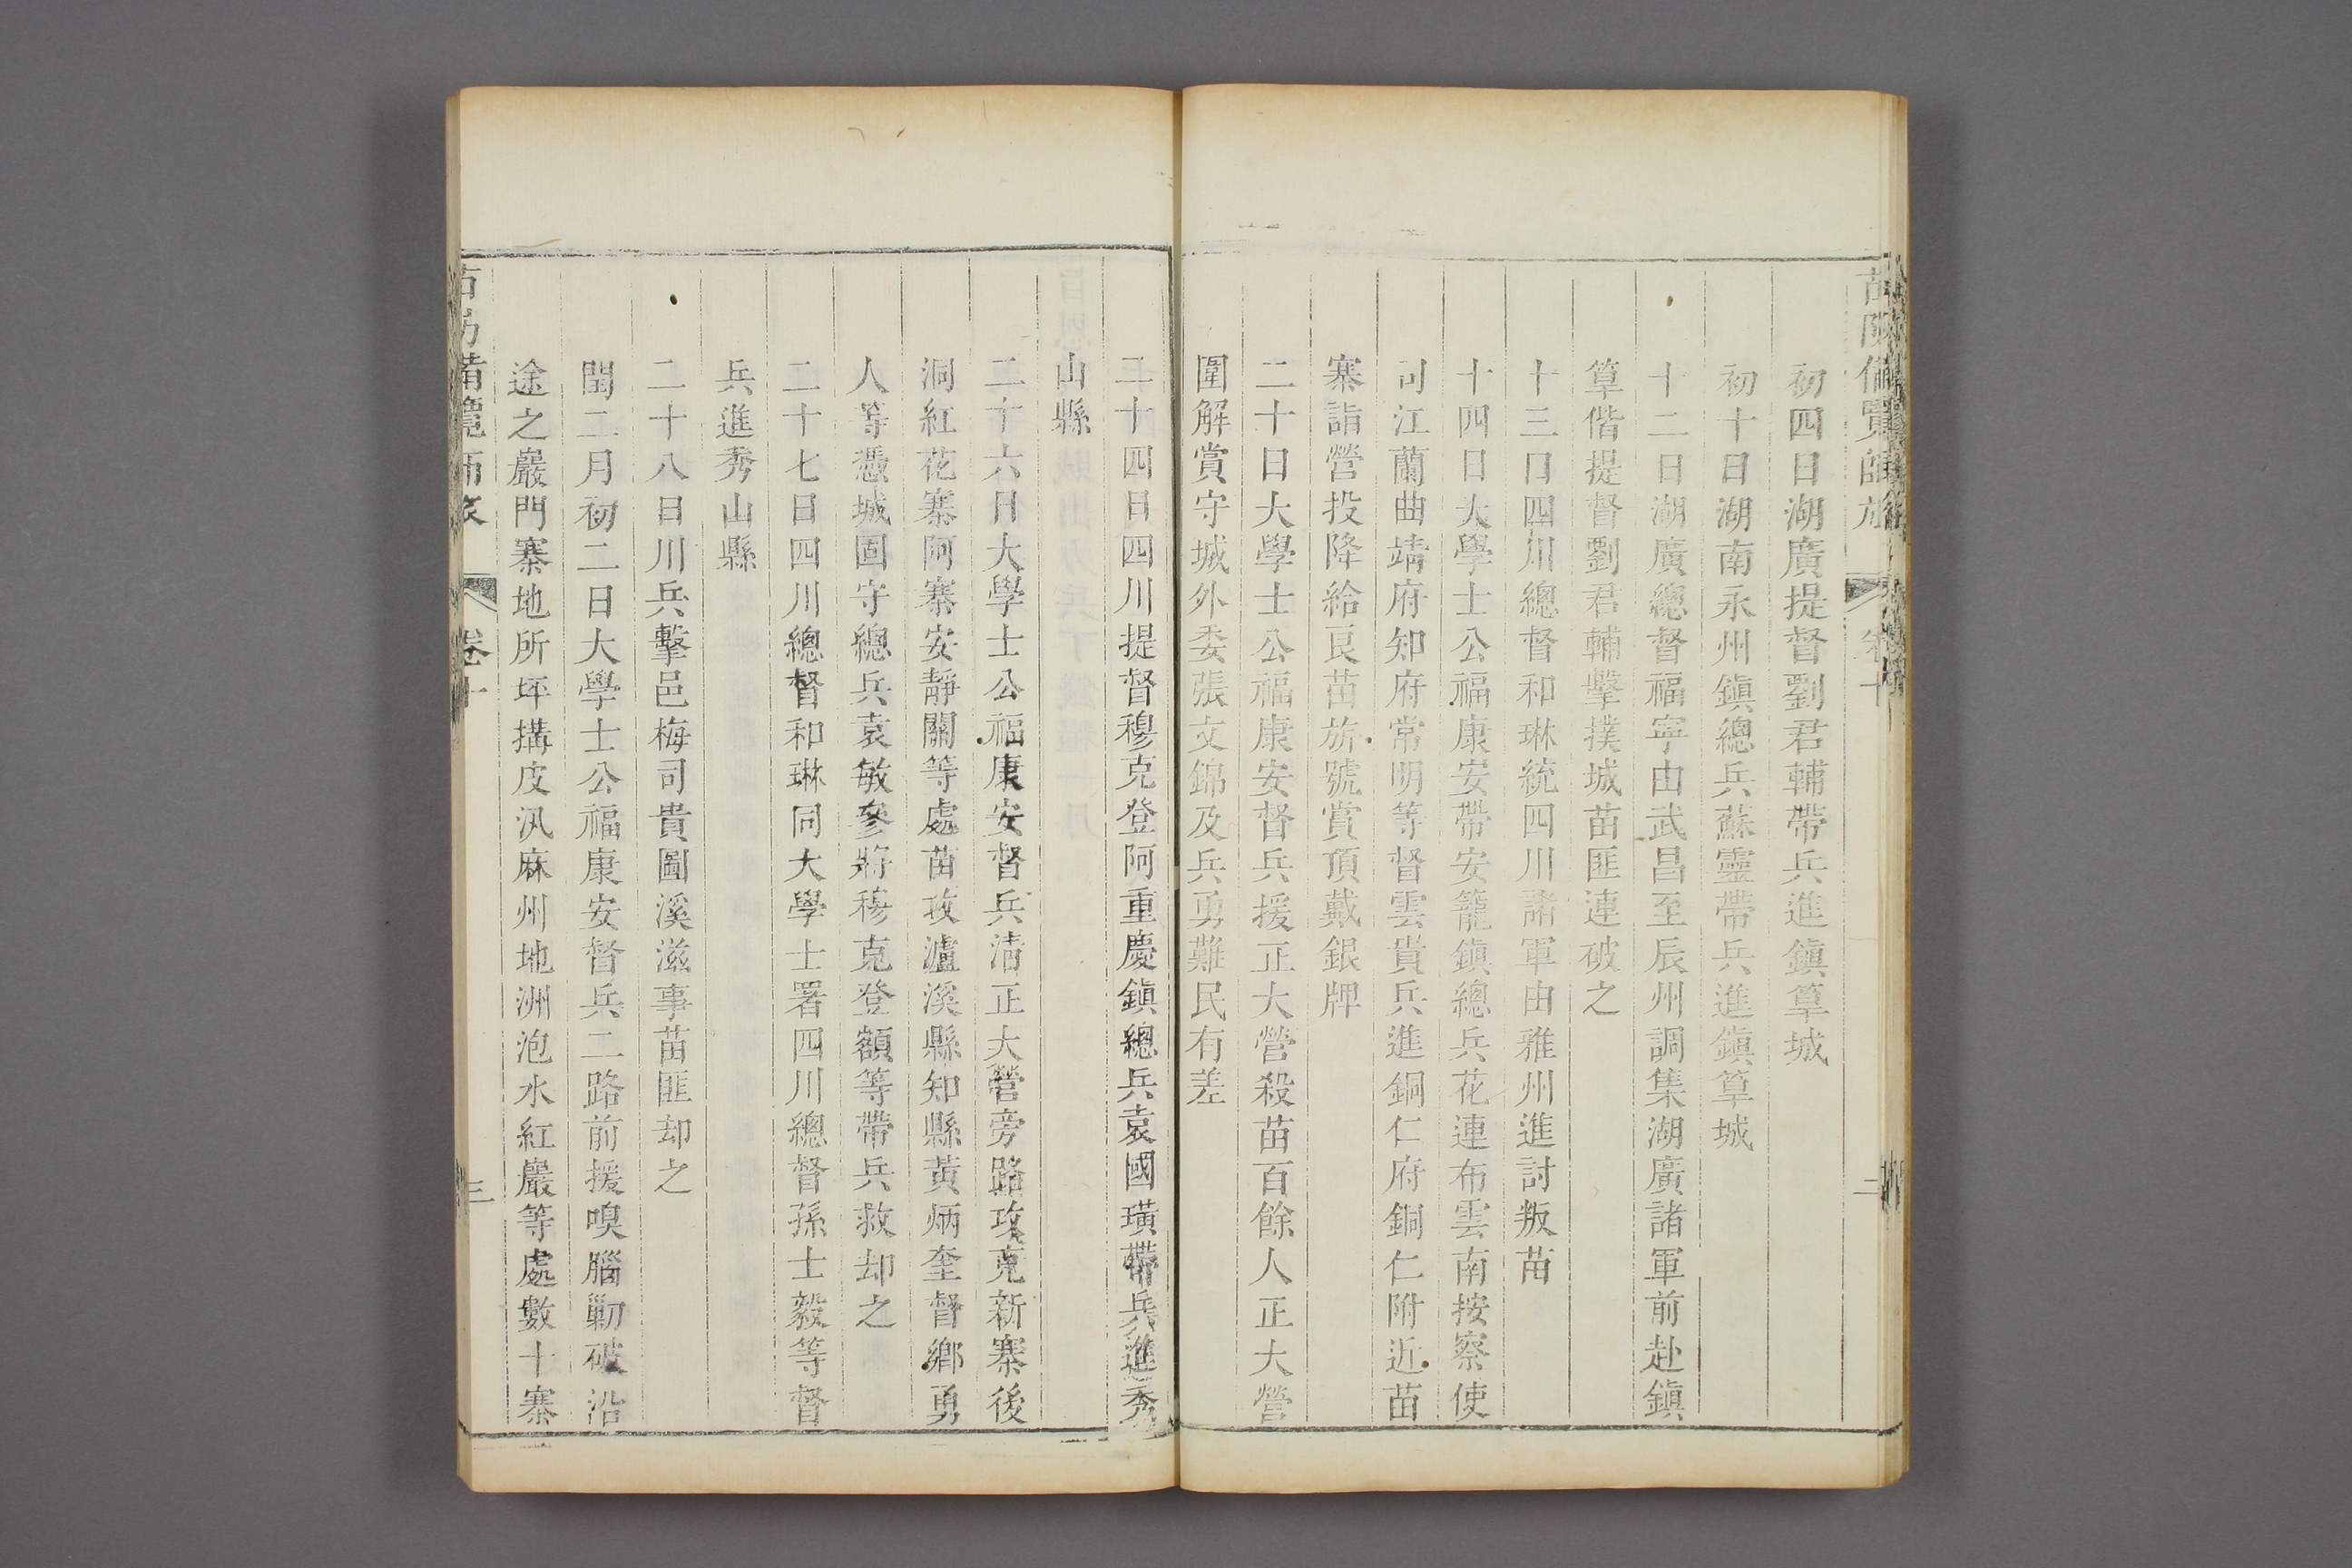 苗防備覽師旅
卷十
二
初四日湖廣提督劉君輔帶兵進鎭筸城
初十日湖南永州鎭總兵蘇靈帶兵進鎭筸城
十二日湖廣總督福寧由武昌至辰州調集湖廣諸軍前赴鎭
筸偕提督劉君輔擊撲城苗匪連破之
十三日四川總督和琳統四川諸軍由雅州進討叛苗
十四日大學士公福康安帶安籠鎭總兵花連布雲南按察使
司江蘭曲靖府知府常明等督雲貴兵進銅仁府銅仁附近苗
寨詣營投降給良苗旂號賞頂戴銀牌
二十日大學士公福康安督兵援正大營殺苗百餘人正大營
圍解賞守城外委張文錦及兵勇難民有差
二十四日四川提督穆克登阿重慶鎭總兵袁國璜帶兵進秀
山縣
二十六日大學士公福康安督兵淸正大營旁路攻克新寨後
洞紅花寨阿寨安靜關等處苗攻瀘溪縣知縣黃炳奎督鄉勇
人等憑城固守總兵袁敏參將穆克登額等帶兵救却之
二十七日四川總督和琳同大學士署四川總督孫士毅等督
兵進秀山縣
二十八日川兵擊邑梅司貴圖溪滋事苗匪却之
閏二月初二日大學士公福康安督兵二路前援嗅腦勦破沿
途之巖門寨地所坪搆皮汛麻州地洲泡水紅巖等處數十寨
苗防備覽師旅
卷十
三